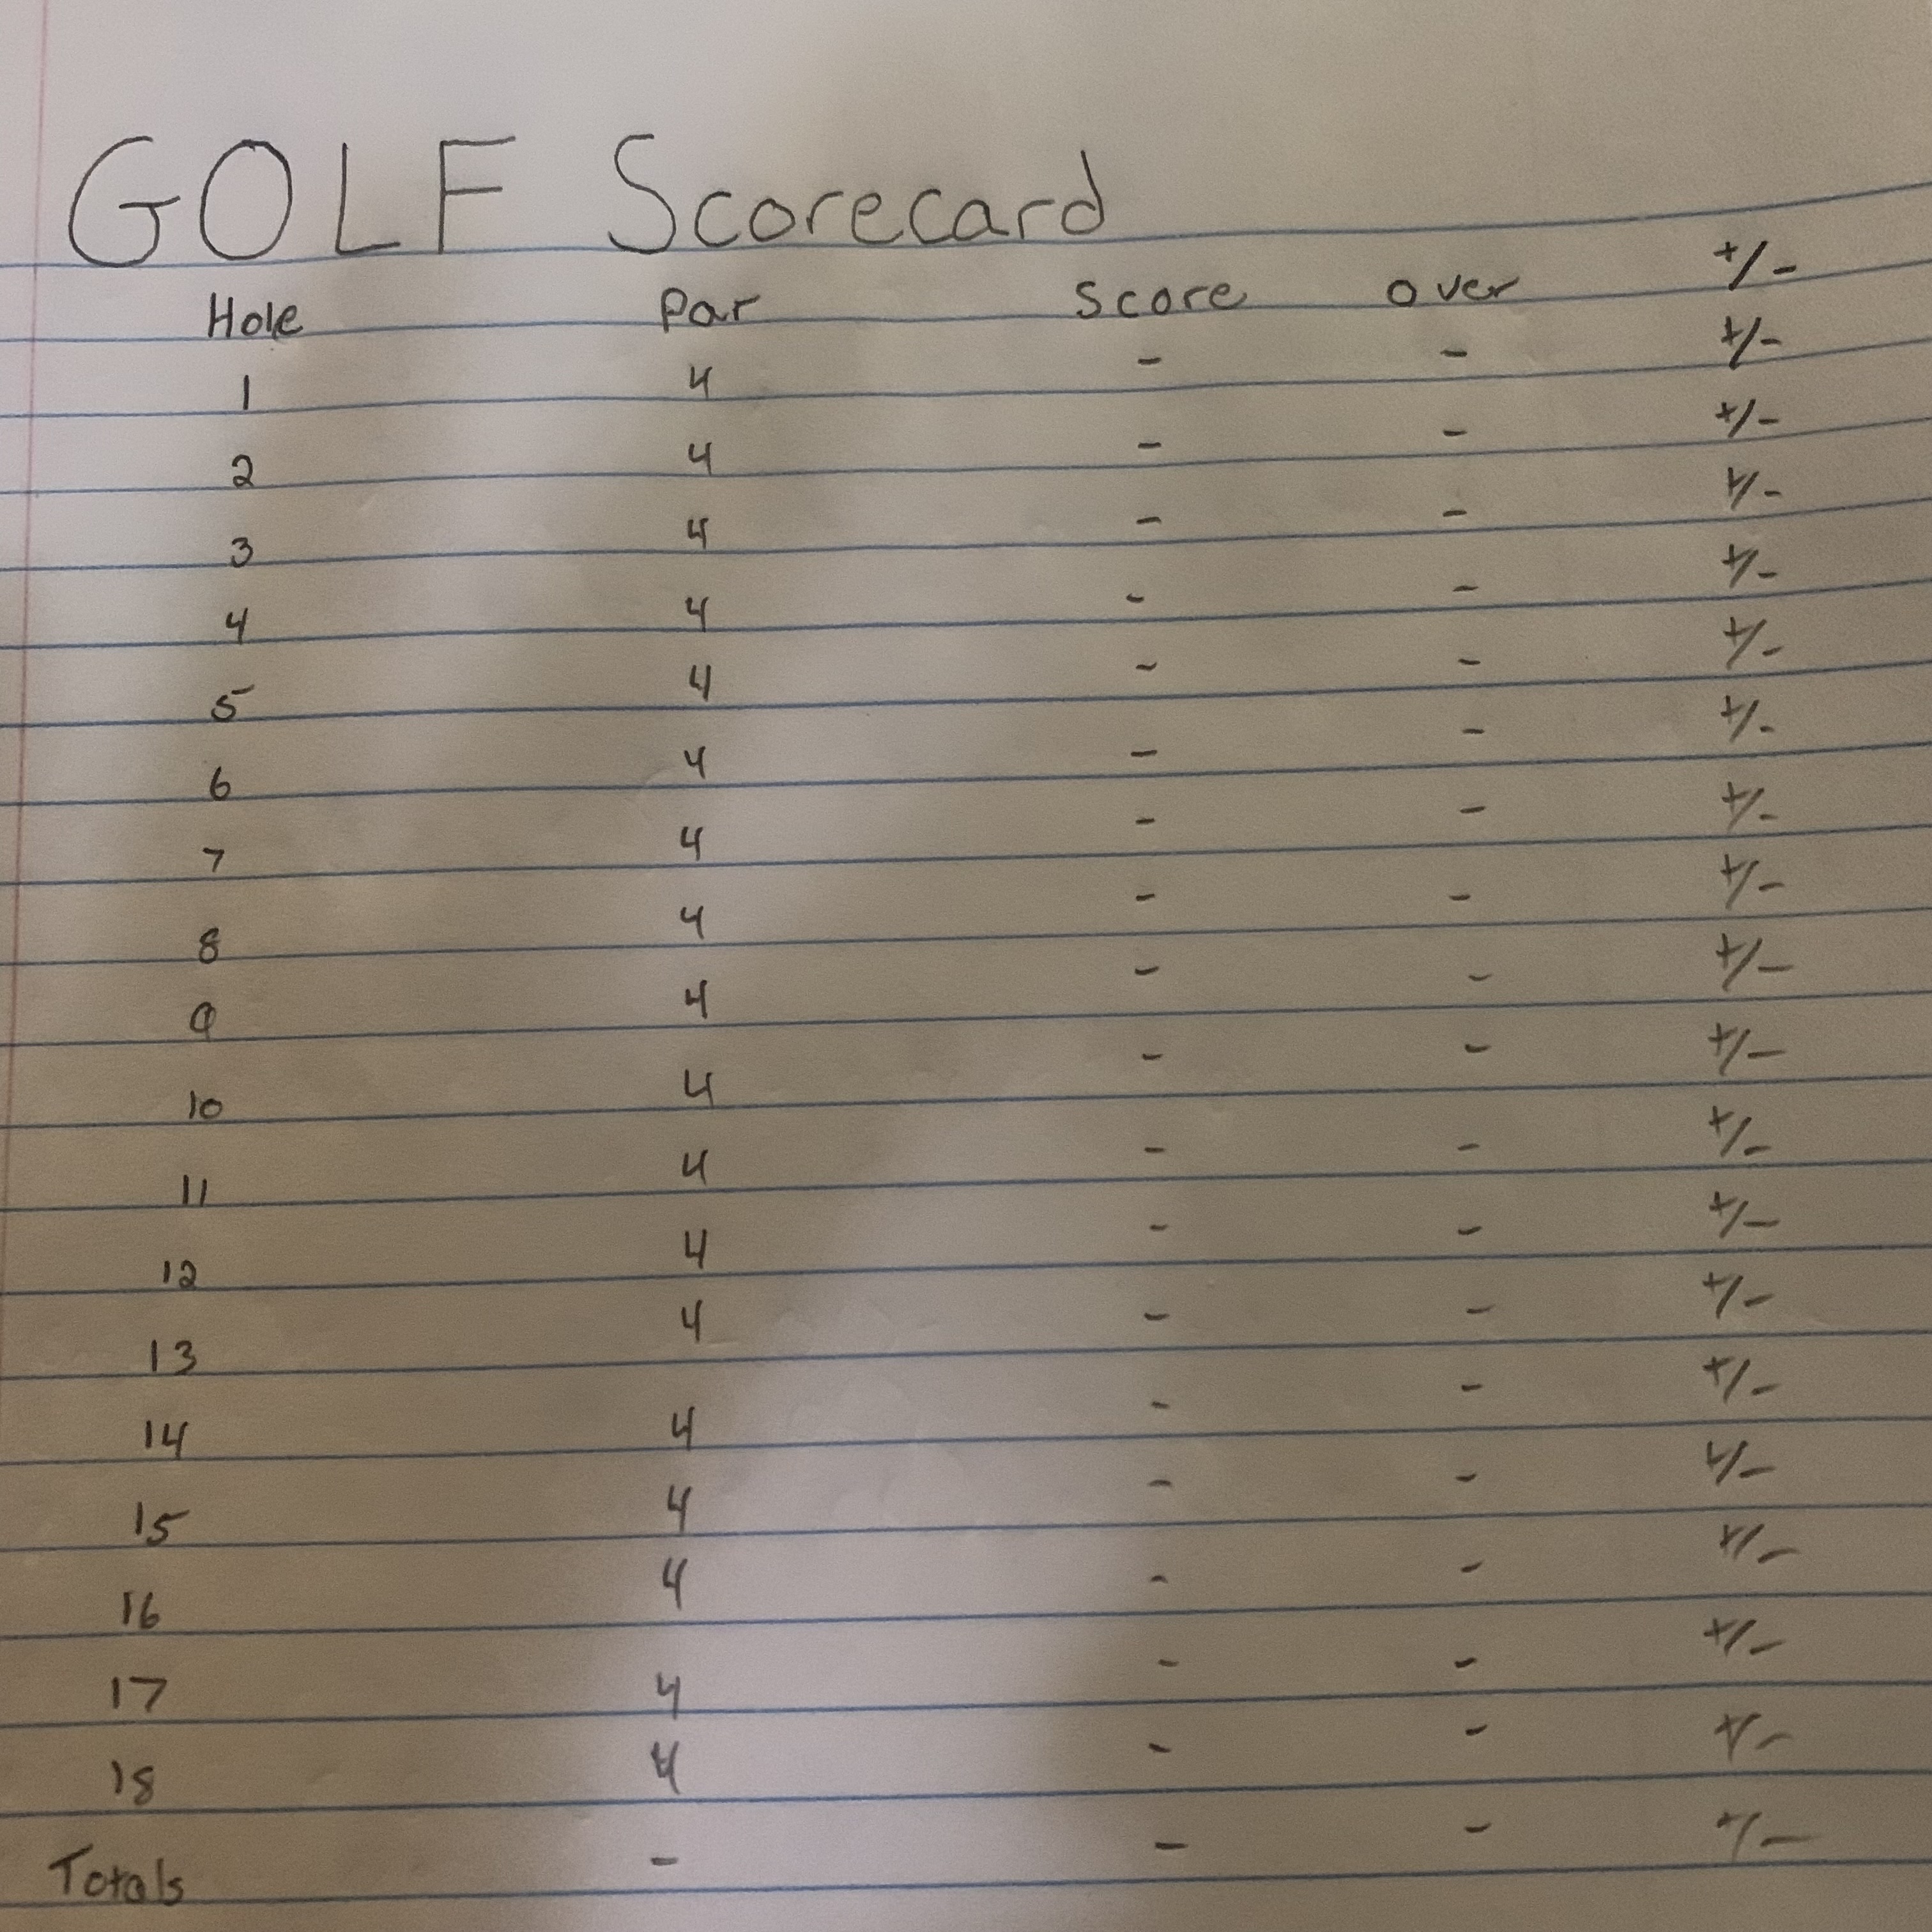 GOLF Scorecard
Hole Par Score over +/-
1 4 - - +/-
2 4 - - +/-
3 4 - - +/-
4 4 - - +/-
5 4 - - +/-
6 4 - - +/-
7 4 - - +/-
8 4 - - +/-
9 4 - - +/-
10 4 - - +/-
11 4 - - +/-
12 4 - - +/-
13 4 - - +/-
14 4 - - +/-
15 4 - - +/-
16 4 - - +/-
17 4 - - +/-
18 4 - - +/-
Totals - - - +/-